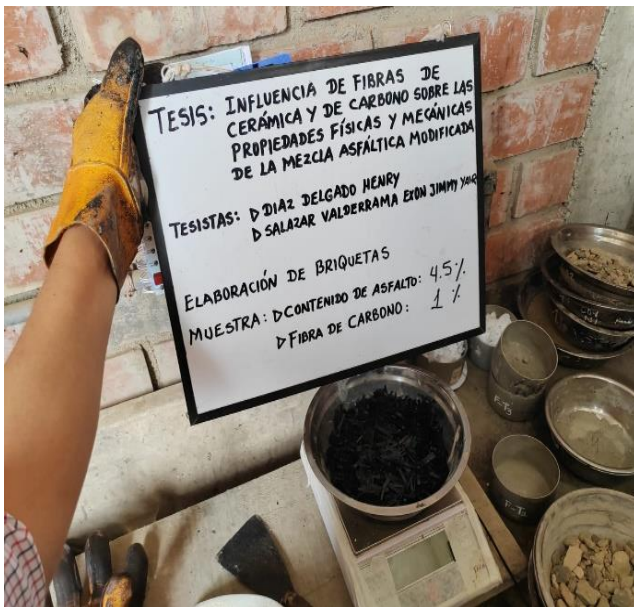 TESIS: INFLUENCIA DE FIBRAS DE
CERÁMICA Y DE CARBONO SOBRE LAS
PROPIEDADES FÍSICAS Y MECÁNICAS
DE LA MEZCLA ASFÁLTICA MODIFICADA
TESISTAS: DIAZ DELGADO HENRY
SALAZAR VALDERRAMA EXON JIMMY
ELABORACIÓN DE BRIQUETAS
MUESTRA: CONTENIDO DE ASFALTO: 4.5%
FIBRA DE CARBONO: 1 %